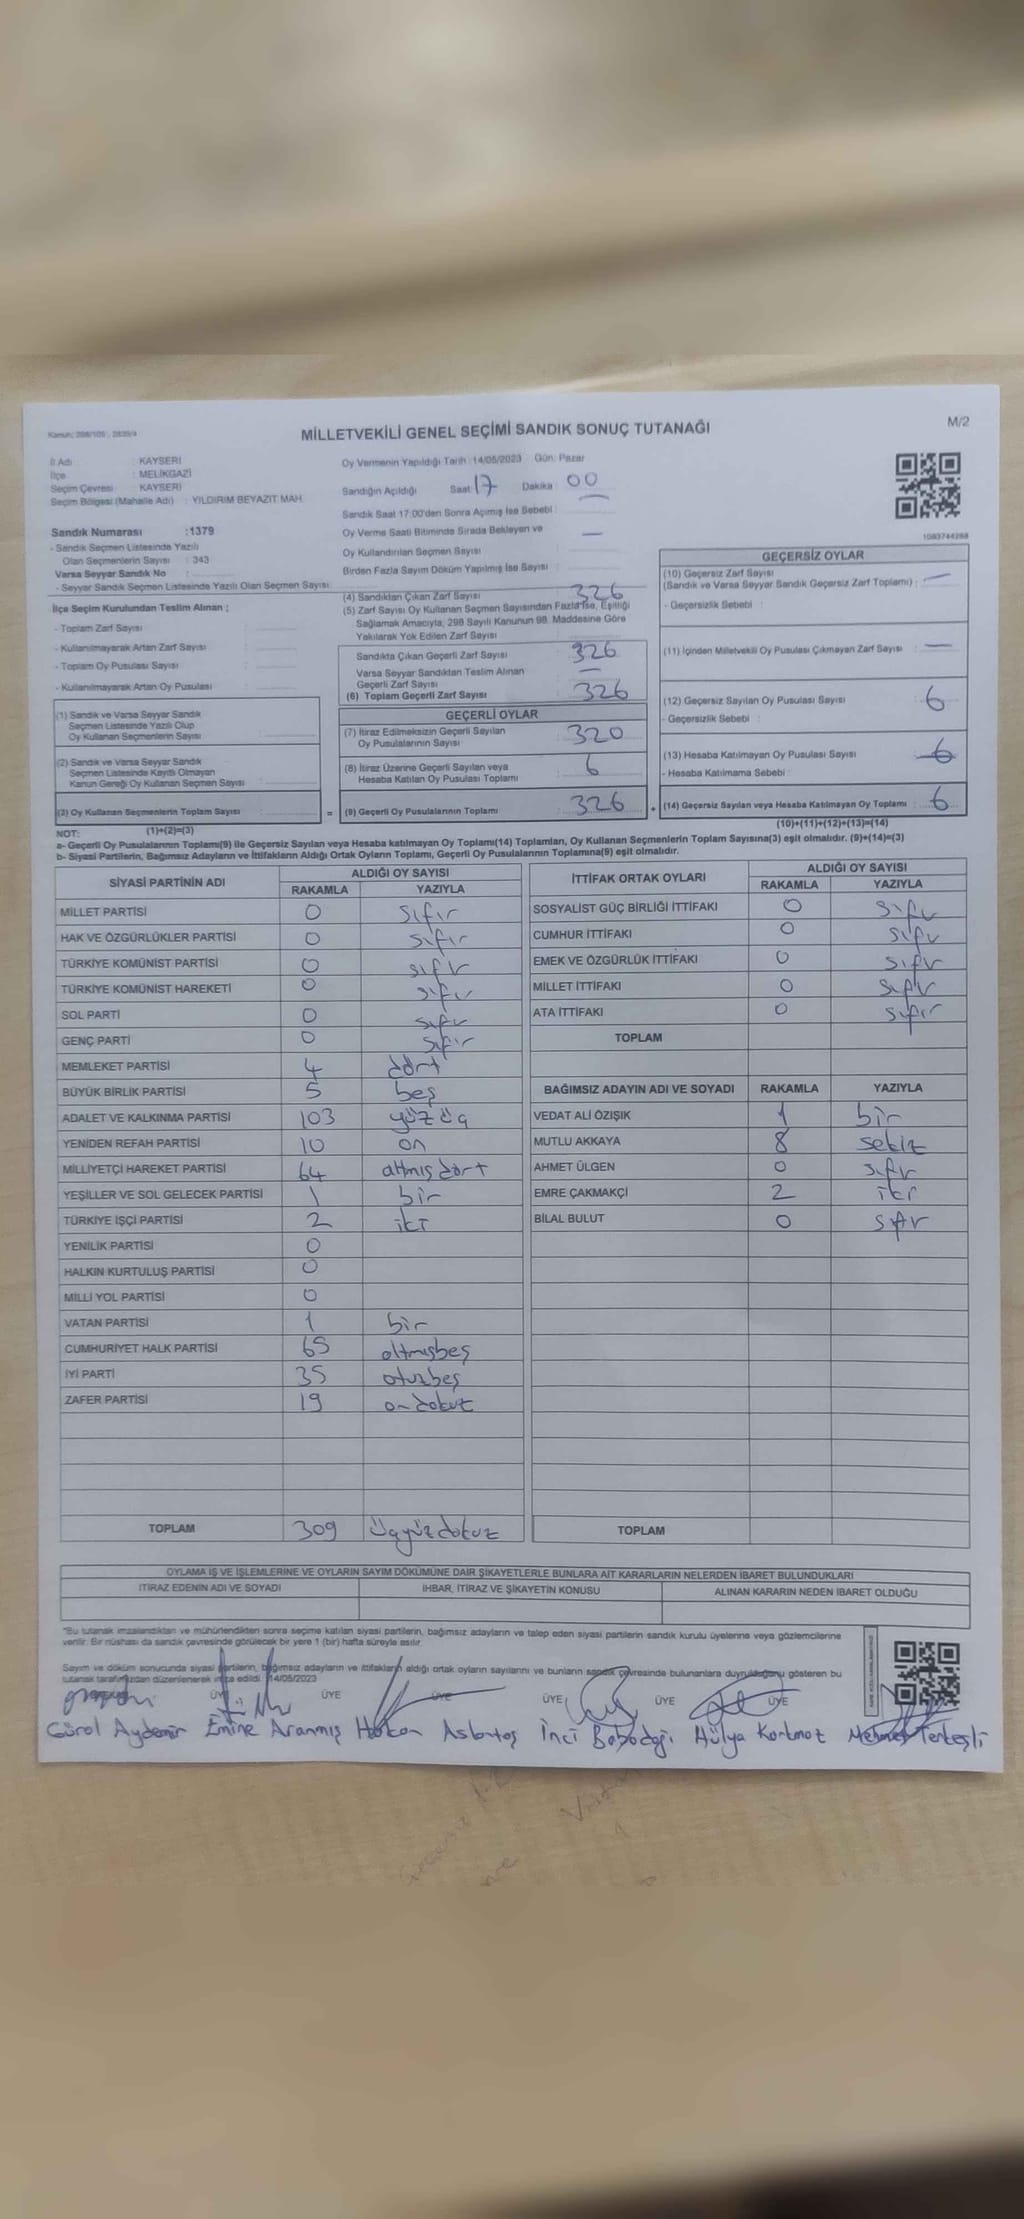 Kanun: 298/105 , 2839/4
MİLLETVEKİLİ GENEL SEÇİMİ SANDIK SONUÇ TUTANAĞI
M/2
İl Adı : KAYSERİ
İlçe : MELİKGAZİ
Seçim Çevresi : KAYSERİ
Seçim Bölgesi (Mahalle Adı) : YILDIRIM BEYAZIT MAH.
Sandık Numarası : 1379
- Sandık Seçmen Listesinde Yazılı
Olan Seçmenlerin Sayısı : 343
Varsa Seyyar Sandık No :
- Seyyar Sandık Seçmen Listesinde Yazılı Olan Seçmen Sayısı :
Oy Vermenin Yapıldığı Tarih : 14/05/2023 Gün: Pazar
Sandığın Açıldığı Saat 17 Dakika 00
Sandık Saat 17:00'den Sonra Açımış İse Sebebi :
Oy Verme Saati Bitiminde Sırada Bekleyen ve —
Oy Kullandırılan Seçmen Sayısı
Birden Fazla Sayım Döküm Yapılmış İse Sayısı :
1083744288
İlçe Seçim Kurulundan Teslim Alınan ;
- Toplam Zarf Sayısı :
- Kullanılmayarak Artan Zarf Sayısı :
- Toplam Oy Pusulası Sayısı :
- Kullanılmayarak Artan Oy Pusulası :
(1) Sandık ve Varsa Seyyar Sandık
Seçmen Listesinde Yazılı Olup
Oy Kullanan Seçmenlerin Sayısı :
(2) Sandık ve Varsa Seyyar Sandık
Seçmen Listesinde Kayıtlı Olmayan
Kanun Gereği Oy Kullanan Seçmen Sayısı :
(3) Oy Kullanan Seçmenlerin Toplam Sayısı : =
(4) Sandıktan Çıkan Zarf Sayısı : 326
(5) Zarf Sayısı Oy Kullanan Seçmen Sayısından Fazla İse, Eşitliği
Sağlamak Amacıyla, 298 Sayılı Kanunun 98. Maddesine Göre
Yakılarak Yok Edilen Zarf Sayısı :
Sandıkta Çıkan Geçerli Zarf Sayısı : 326
Varsa Seyyar Sandıktan Teslim Alınan
Geçerli Zarf Sayısı : —
(6) Toplam Geçerli Zarf Sayısı : 326
GEÇERLİ OYLAR
(7) İtiraz Edilmeksizin Geçerli Sayılan
Oy Pusulalarının Sayısı : 320
(8) İtiraz Üzerine Geçerli Sayılan veya
Hesaba Katılan Oy Pusulası Toplamı : 6
(9) Geçerli Oy Pusulalarının Toplamı : 326 +
GEÇERSİZ OYLAR
(10) Geçersiz Zarf Sayısı
(Sandık ve Varsa Seyyar Sandık Geçersiz Zarf Toplamı) : —
- Geçersizlik Sebebi :
(11) İçinden Milletvekili Oy Pusulası Çıkmayan Zarf Sayısı : —
(12) Geçersiz Sayılan Oy Pusulası Sayısı : 6
- Geçersizlik Sebebi :
(13) Hesaba Katılmayan Oy Pusulası Sayısı : 6
- Hesaba Katılmama Sebebi :
(14) Geçersiz Sayılan veya Hesaba Katılmayan Oy Toplamı : 6
(10)+(11)+(12)+(13)=(14)
NOT: (1)+(2)=(3)
a- Geçerli Oy Pusulalarının Toplamı(9) ile Geçersiz Sayılan veya Hesaba katılmayan Oy Toplamı(14) Toplamları, Oy Kullanan Seçmenlerin Toplam Sayısına(3) eşit olmalıdır. (9)+(14)=(3)
b- Siyasi Partilerin, Bağımsız Adayların ve İttifakların Aldığı Ortak Oyların Toplamı, Geçerli Oy Pusulalarının Toplamına(9) eşit olmalıdır.
SİYASİ PARTİNİN ADI ALDIĞI OY SAYISI
RAKAMLA YAZIYLA
MİLLET PARTİSİ 0 sıfır
HAK VE ÖZGÜRLÜKLER PARTİSİ 0 sıfır
TÜRKİYE KOMÜNİST PARTİSİ 0 sıfır
TÜRKİYE KOMÜNİST HAREKETİ 0 sıfır
SOL PARTİ 0 sıfır
GENÇ PARTİ 0 sıfır
MEMLEKET PARTİSİ 4 dört
BÜYÜK BİRLİK PARTİSİ 5 beş
ADALET VE KALKINMA PARTİSİ 103 yüz üç
YENİDEN REFAH PARTİSİ 10 on
MİLLİYETÇİ HAREKET PARTİSİ 64 altmış dört
YEŞİLLER VE SOL GELECEK PARTİSİ 1 bir
TÜRKİYE İŞÇİ PARTİSİ 2 iki
YENİLİK PARTİSİ 0
HALKIN KURTULUŞ PARTİSİ 0
MİLLİ YOL PARTİSİ 0
VATAN PARTİSİ 1 bir
CUMHURİYET HALK PARTİSİ 65 altmışbeş
İYİ PARTİ 35 otuzbeş
ZAFER PARTİSİ 19 on dokuz
TOPLAM 309 üçyüz dokuz
İTTİFAK ORTAK OYLARI ALDIĞI OY SAYISI
RAKAMLA YAZIYLA
SOSYALİST GÜÇ BİRLİĞİ İTTİFAKI 0 sıfır
CUMHUR İTTİFAKI 0 sıfır
EMEK VE ÖZGÜRLÜK İTTİFAKI 0 sıfır
MİLLET İTTİFAKI 0 sıfır
ATA İTTİFAKI 0 sıfır
TOPLAM
BAĞIMSIZ ADAYIN ADI VE SOYADI RAKAMLA YAZIYLA
VEDAT ALİ ÖZIŞIK 1 bir
MUTLU AKKAYA 8 sekiz
AHMET ÜLGEN 0 sıfır
EMRE ÇAKMAKÇİ 2 iki
BİLAL BULUT 0 sıfır
TOPLAM
OYLAMA İŞ VE İŞLEMLERİNE VE OYLARIN SAYIM DÖKÜMÜNE DAİR ŞİKAYETLERLE BUNLARA AİT KARARLARIN NELERDEN İBARET BULUNDUKLARI
İTİRAZ EDENİN ADI VE SOYADI İHBAR, İTİRAZ VE ŞİKAYETİN KONUSU ALINAN KARARIN NEDEN İBARET OLDUĞU
*Bu tutanak imzalandıktan ve mühürlendikten sonra seçime katılan siyasi partilerin, bağımsız adayların ve talep eden siyasi partilerin sandık kurulu üyelerine veya gözlemcilerine
verilir. Bir nüshası da sandık çevresinde görülecek bir yere 1 (bir) hafta süreyle asılır.
Sayım ve döküm sonucunda siyasi partilerin, bağımsız adayların ve ittifakların aldığı ortak oyların sayılarını ve bunların sandık çevresinde bulunanlara duyrulduğunu gösteren bu
tutanak tarafımızdan düzenlenerek imza edildi. 14/05/2023
ÜYE ÜYE ÜYE ÜYE ÜYE ÜYE
Gürol Aydemir Emine Aranmış Hakan Aslantaş İnci Babadağı Hülya Korkmaz Mehmet